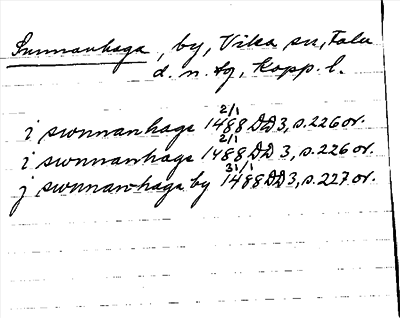 Sunnanhaga, by, Vika sn, Falu
d. n. fg, Kopp. l.
i swnnanhaga 2/1 1488 DD 3, s. 226 or.
i swnnanhaga 2/1 1488 DD 3, s. 226 or.
j swnnanhaga by 31/1 1488 DD 3, s. 227 or.